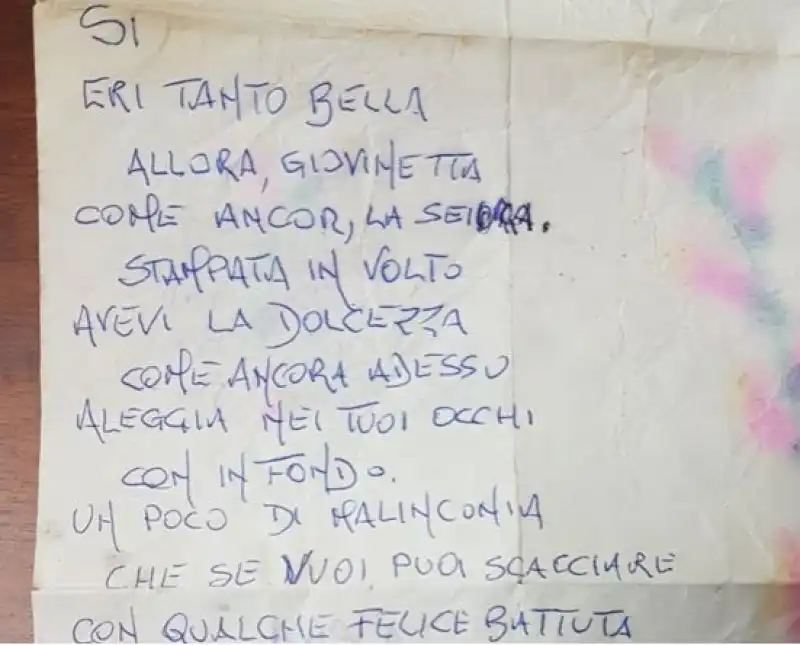 SI
ERI TANTO BELLA
ALLORA, GIOVINETTA
COME ANCOR, LA SEI
STAMPATA IN VOLTO
AVEVI LA DOLCEZZA
COME ANCORA ADESSO
ALEGGIA NEI TUOI OCCHI
CON IN FONDO.
UN POCO DI MALINCONIA
CHE SE VUOI PUOI SCACCIARE
CON QUALCHE FELICE BATTUTA